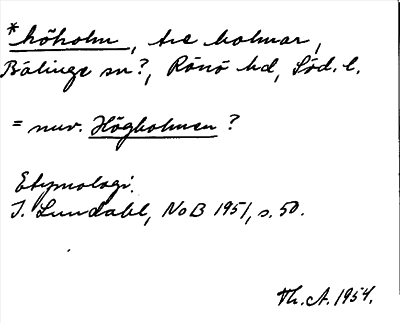 *hőholm, tre holmar,
Bälinge sn?, Rönö hd, Söd. l.
= nuv. Högholmen?
Etymologi.
I. Lundahl, NoB 1951, s. 50.
Th. A. 1954.